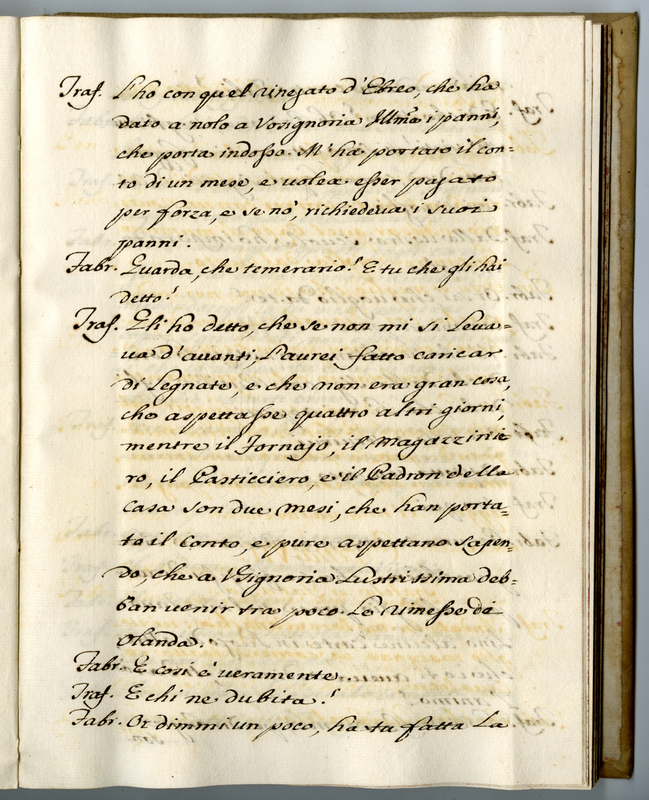 Traf. L'ho con quel rinegato d'Ebreo, che ha
dato a nolo a Vosignoria Illma i panni,
che porta indosso. M'ha portato il con=
to di un mese, e volea esser pagato
per forza, e se nò, richiedeva i suoi
panni.
Fabr. Guarda, che temerario! E tu che gli hai
detto?
Traf. Gli ho detto, che se non mi si leva=
va d'avanti, l'aurei fatto caricar
di legnate, e che non era gran cosa,
che aspettasse quattro altri giorni,
mentre il Fornajo, il Magazzinie
ro, il Pasticciero, e il Padron della
casa son due mesi, che han porta=
to il conto, e pure aspettano sapen=
do, che a VSignoria Lustrissima deb=
ban venir tra poco le rimesse di
Olanda.
Fabr. E così è veramente
Traf. E chi ne dubita?
Fabr. Or dimmi un poco, ha tu fatta la